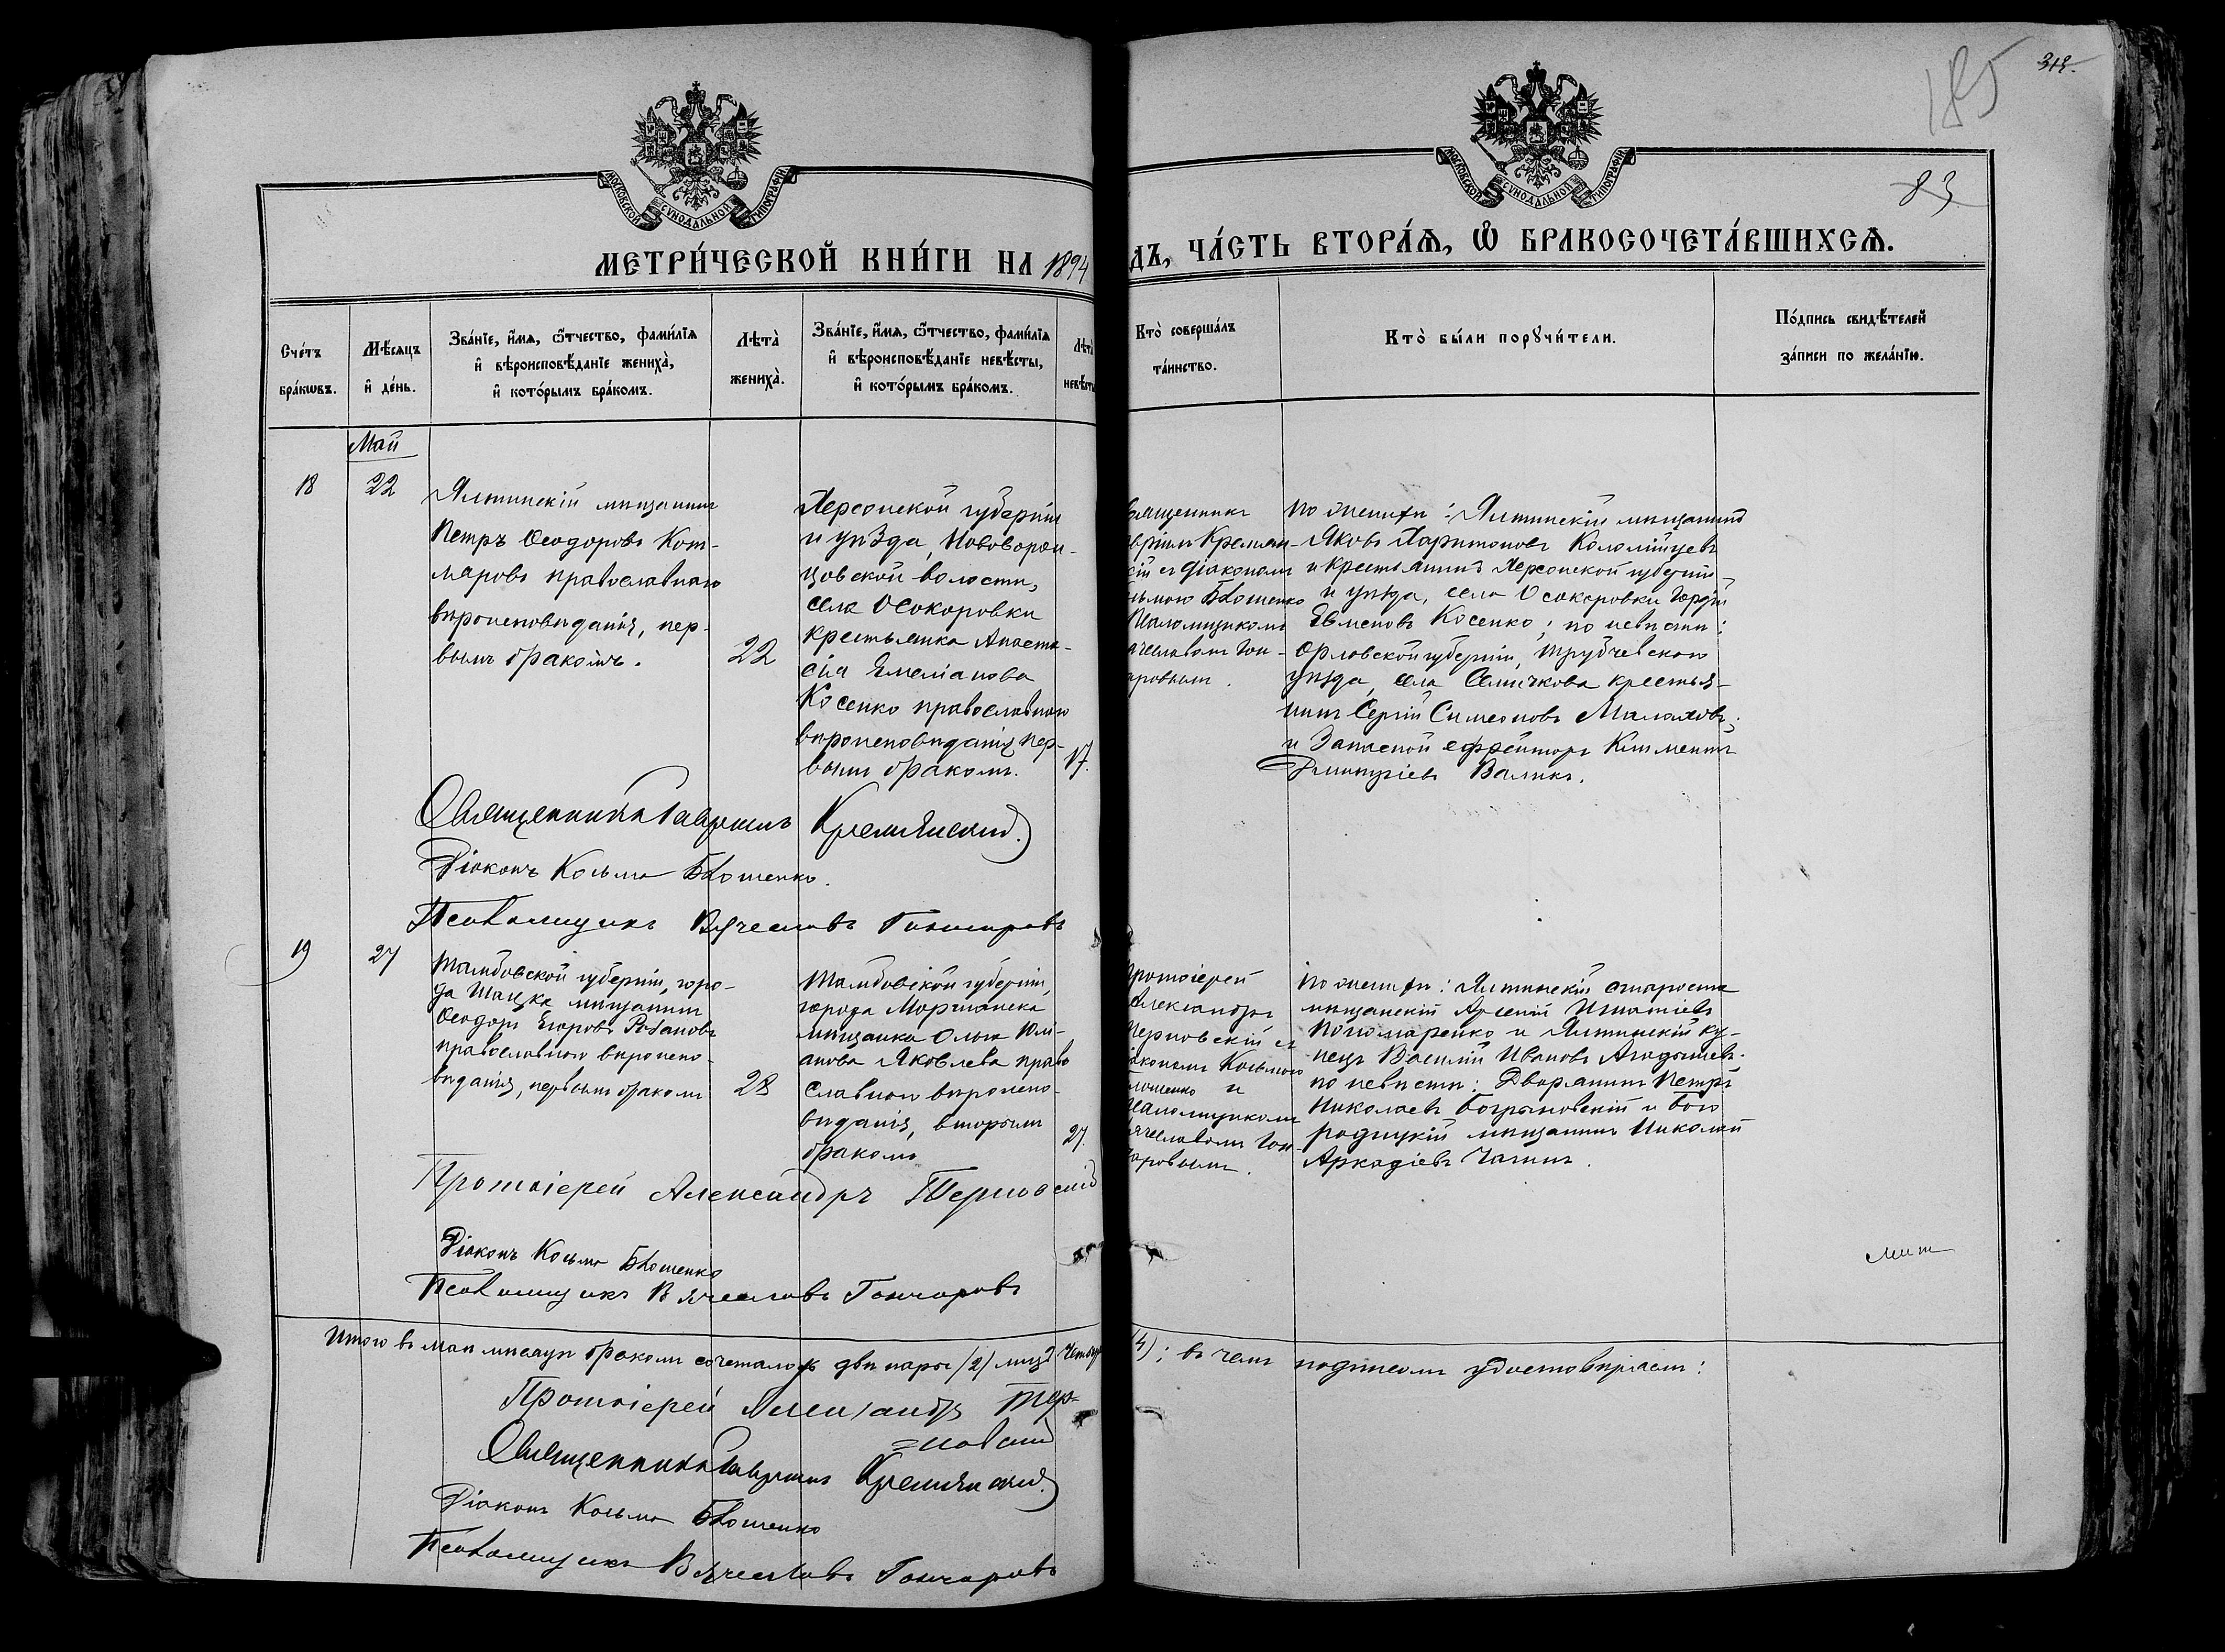 315.
185
83
МОСКОВСКОЙ СѴНОДАЛЬНОЙ ТИПОГРАФІИ
МОСКОВСКОЙ СѴНОДАЛЬНОЙ ТИПОГРАФІИ
МЕТРИ́ЧЕСКОЙ КНИ́ГИ НА 1894
ДЪ, ЧА́СТЬ ВТОРА́Ѧ, Ѽ БРАКОСОЧЕТА́ВШИХСѦ.
Сче́тъ бра́кѡвъ.
Мѣ́сяцъ и҆ де́нь.
Зва́нїе, и҆́мѧ, ѻ҆́тчество, фами́лїѧ
и҆ вѣроисповѣ́данїе женихà,
и҆ кото́рымъ бра́комъ.
Лѣ́та женихà.
Зва́нїе, и҆́мѧ, ѻ҆́тчество, фами́лїѧ
и҆ вѣроисповѣ́данїе невѣ́сты,
и҆ кото́рымъ бра́комъ.
Лѣ́та невѣ́сты
Кто̀ соверша́лъ
та́инство.
Кто̀ бы́ли порꙋчи́тели.
По́дпись свидѣ́телей
за́писи по жела́нїю.
Май
18
22
Ялтинскій мѣщанинъ
Петръ Ѳеодоровъ Кот-
ляровъ православнаго
вѣроисповѣданія, пер-
вымъ бракомъ.
22
Херсонской губерніи
и уѣзда, Нововорон-
цовской волости,
села Осокоровки
крестьянка Анаста-
сія Емеліанова
Косенко православнаго
вѣроисповѣданія, пер-
вымъ бракомъ.
17.
вященникъ
вріилъ Кремян-
кій съ діакономъ
зьмою Блошенко
псаломщикомъ
ячеславомъ Гон-
аровымъ.
по женихѣ: Ялтинскій мѣщанинъ
Яковъ Харитоновъ Коломійцевъ
и крестьянинъ Херсонской губерніи
и уѣзда, села Осокоровки Гордій
Евменовъ Косенко; по невѣстѣ:
Орловской губерніи, Трубчевскаго
уѣзда, села Селичкова крестья-
нинъ Сергій Симеоновъ Малаховъ;
и Запасной ефрейторъ Климентъ
Димитріевъ Валикъ.
Священникъ Гавріилъ Кремянскій.
Діаконъ Козьма Блошенко.
Псаломщикъ Вячеславъ Гончаровъ
19
27
Тамбовской губерніи, горо-
да Шацка мѣщанинъ
Ѳеодоръ Егоровъ
православнаго вѣроиспо-
вѣданія, первымъ бракомъ
28
Тамбовской губерніи,
города Моршанска
мѣщанка Ольга Юлі-
анова Яковлева право
славнаго вѣроиспо-
вѣданія, вторымъ
бракомъ
27.
протоіерей
Александръ
Терновскій съ
іакономъ Козьмою
лошенко и
псаломщикомъ
ячеславомъ Гон-
чаровымъ.
по женихѣ: Ялтинскій староста
мѣщанскій Арсеній Игнатіевъ
Пономаренко и Ялтинскій ку-
пецъ Василій Ивановъ
по невѣстѣ: Дворянинъ Петръ
Николаевъ и Бого
родицкій мѣщанинъ Николай
Аркадіевъ Чагинъ.
Протоіерей Александръ Терновскій
Діаконъ Козьма Блошенко
Псаломщикъ Вячеславъ Гончаровъ
Итого въ маѣ мѣсяцѣ бракомъ сочеталось двѣ пары (2) лицъ четыре
(4); въ чемъ подписомъ удостовѣряемъ:
Протоіерей Александръ Тер-
=новскій
Священникъ Гавріилъ Кремянскій.
Діаконъ Козьма Блошенко
Псаломщикъ Вячеславъ Гончаровъ